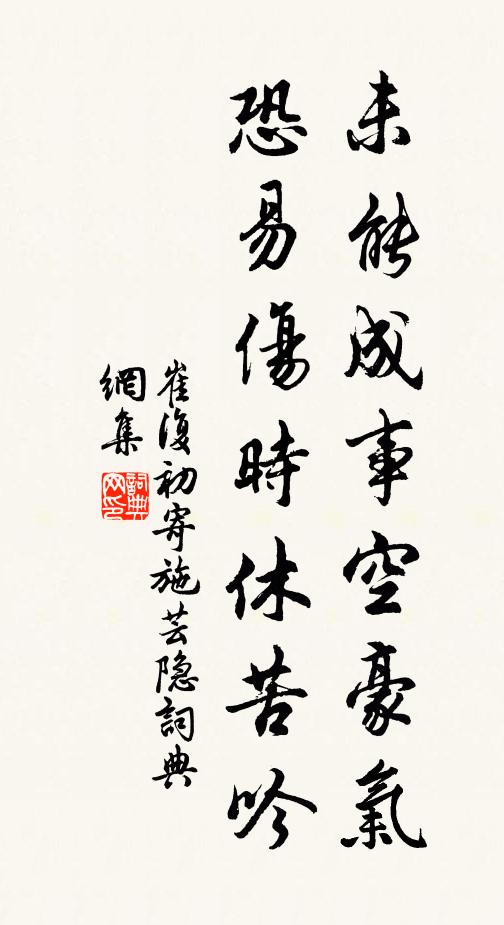 未能成事空豪氣
恐易傷時休苦吟
崔復初寄施芸隐詞典
網集
詞典網印